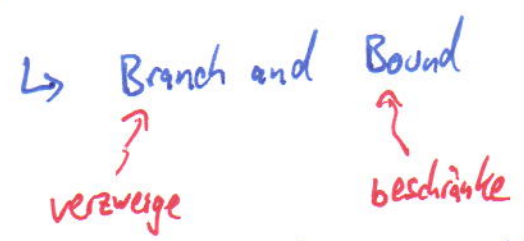 ↳ Branch and Bound
verzweige beschränke